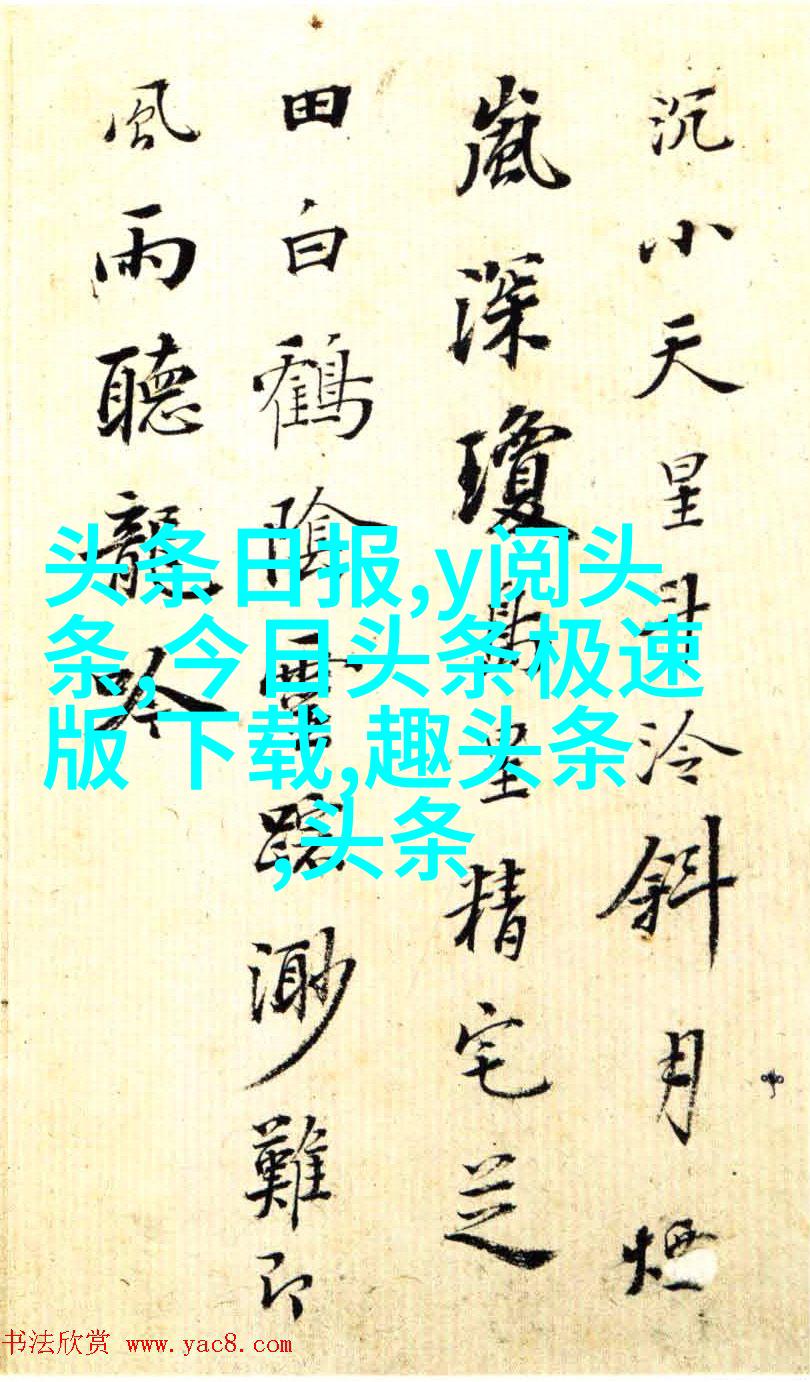 沉小天星斗泠斜月煙
嵐深瓊島星精宅芝
田白鶴陰雲蹤渺難即
風雨聽龍吟
头条日报,y阅头
条,今日头条极速
版 下载,趣头条
,头条
书法欣赏 www.yac8.com